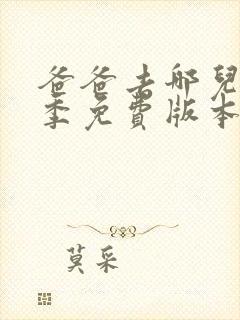 爸爸去哪兒
季免費版本
莫采